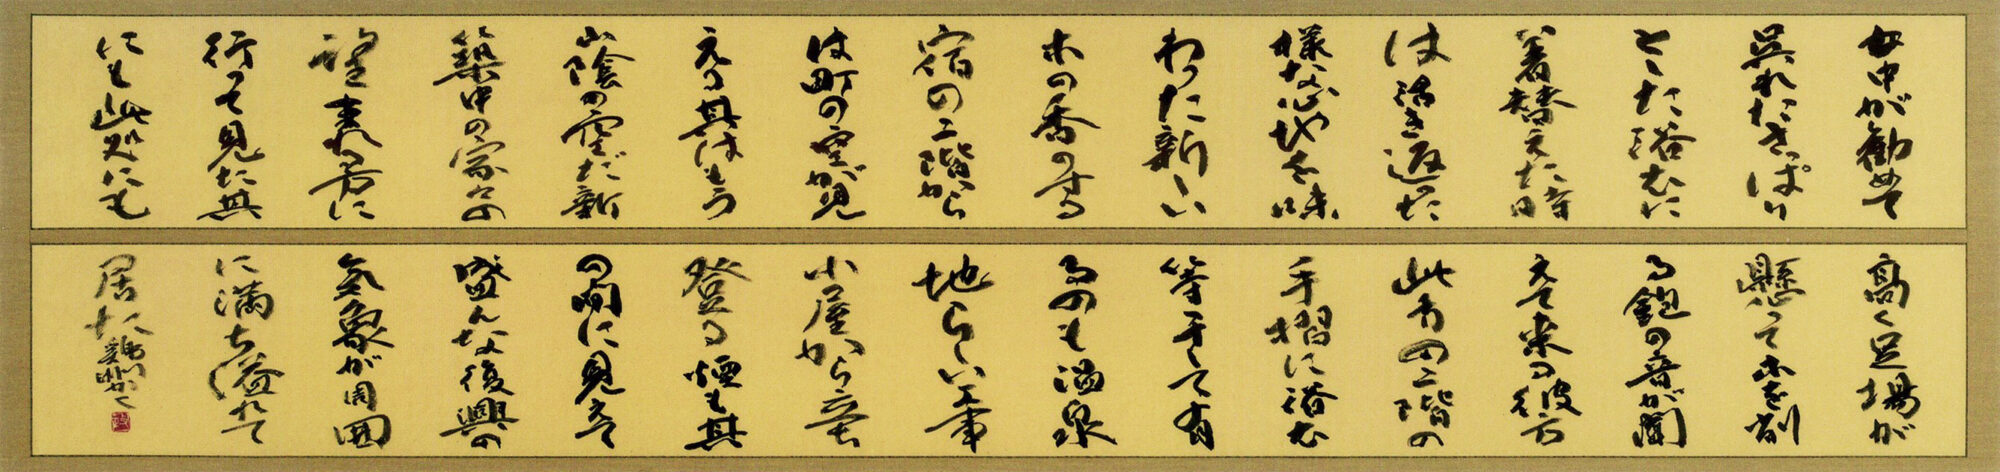 女中が勧めて
呉れたさっぱり
とした浴衣に
着替えた時
は活き返った
様な心地を味
わった新しい
木の香のする
宿の二階から
は町の空が見
える其はもう
山陰の空だ新
築中の家々の
望まれる方に
行って見た其
にも此処にも
高く足場が
懸って木を削
る鉋の音が聞
えて来る彼方
此方の二階の
手摺に浴衣
等干して有
るのも温泉
地らしい工事
小屋から立
登る煙も其
の間に見えて
盛んな復興の
気象が周囲
に満ち溢れて
居た